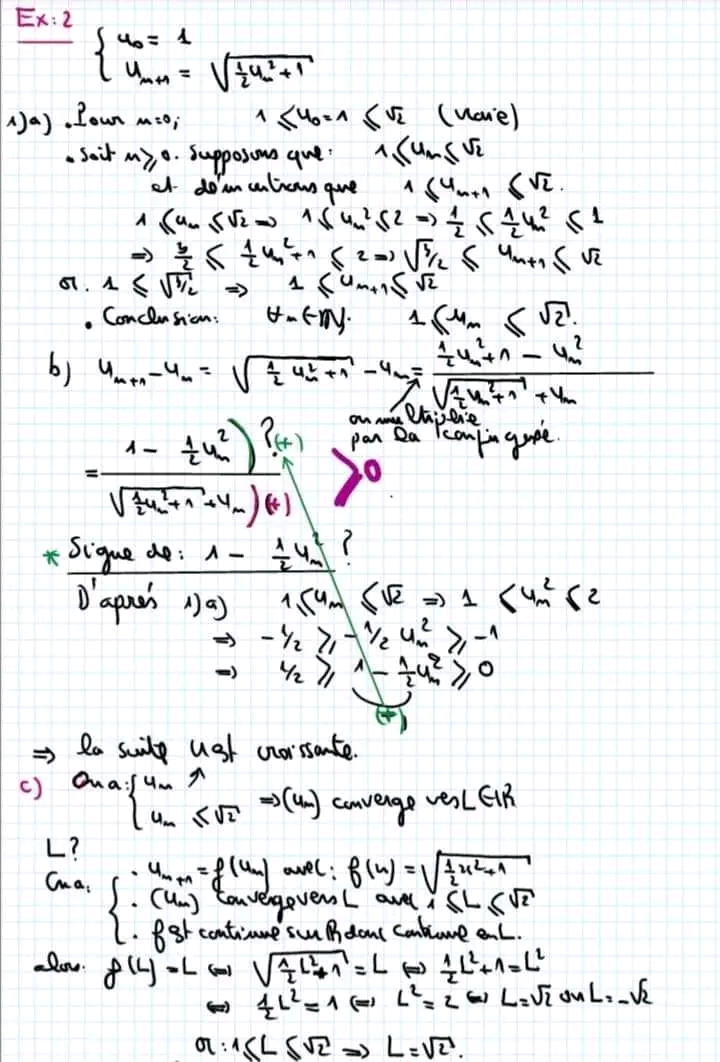 Ex: 2
{ u₀ = 1
{ uₙ₊₁ = √(½uₙ² + 1)
1)a) . Pour n=0; 1 ≤ u₀=1 ≤ √2 (Vraie)
. Soit n ≥ 0. Supposons que: 1 ≤ uₙ ≤ √2
et démontrons que 1 ≤ uₙ₊₁ ≤ √2.
1 ≤ uₙ ≤ √2 => 1 ≤ uₙ² ≤ 2 => ½ ≤ ½uₙ² ≤ 1
=> 3/2 ≤ ½uₙ² + 1 ≤ 2 => √(3/2) ≤ uₙ₊₁ ≤ √2
or. 1 ≤ √(3/2) => 1 ≤ uₙ₊₁ ≤ √2
. Conclusion: ∀n∈IN. 1 ≤ uₙ ≤ √2.
b) uₙ₊₁ - uₙ = √(½uₙ² + 1) - uₙ = (½uₙ² + 1 - uₙ²) / (√(½uₙ² + 1) + uₙ)
on multiplie
par la conjuguée.
= (1 - ½uₙ²) / (√(½uₙ² + 1) + uₙ) ? (+) (+) > 0
* Signe de: 1 - ½uₙ² ?
D'après 1)a) 1 ≤ uₙ ≤ √2 => 1 ≤ uₙ² ≤ 2
=> -1/2 ≥ -1/2 uₙ² ≥ -1
=> 1/2 ≥ 1 - ½uₙ² ≥ 0
(+)
=> la suite u est croissante.
c) On a: { uₙ ↗
{ uₙ ≤ √2 => (uₙ) converge vers L∈IR
L?
On a: { . uₙ₊₁ = f(uₙ) avec: f(x) = √(½x² + 1)
{ . (uₙ) converge vers L avec 1 ≤ L ≤ √2
{ . f est continue sur IR donc continue en L.
alors. f(L) = L <=> √(½L² + 1) = L <=> ½L² + 1 = L²
<=> ½L² = 1 <=> L² = 2 <=> L = √2 ou L = -√2
or: 1 ≤ L ≤ √2 => L = √2.